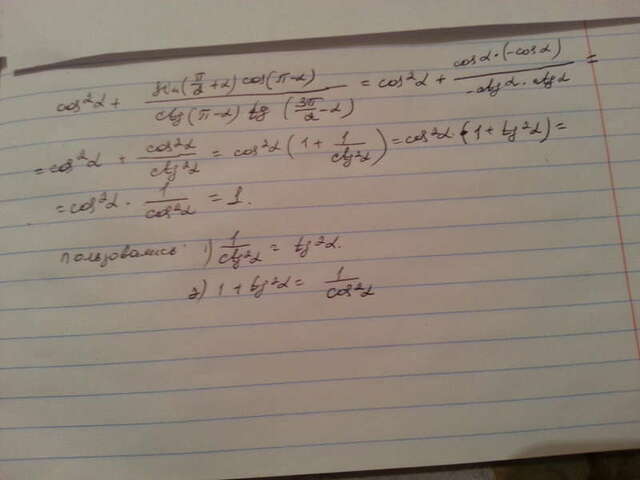 cos²α + sin(π/2+α) cos(π-α) / ctg(π-α) tg(3π/2-α) = cos²α + cosα·(-cosα) / -ctgα·ctgα =
= cos²α + cos²α / ctg²α = cos²α (1 + 1/ctg²α) = cos²α · (1 + tg²α) =
= cos²α · 1/cos²α = 1.
Пользовались: 1) 1/ctg²α = tg²α.
2) 1 + tg²α = 1/cos²α